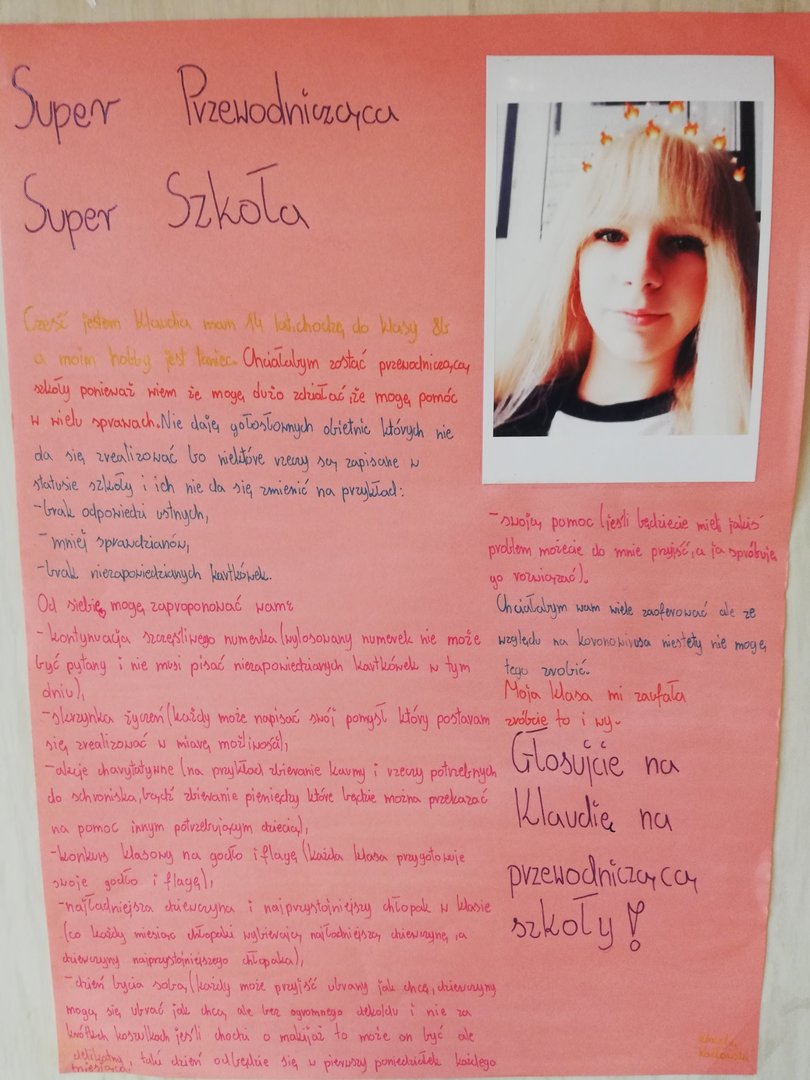 Super Przewodnicząca
Super Szkoła
Cześć jestem Klaudia mam 14 lat.chodzę do klasy 8b
a moim hobby jest taniec. Chciałabym zostać przewodniczącą
szkoły ponieważ wiem że mogę dużo zdziałać, że mogę pomóc
w wielu sprawach. Nie daję gołosłownych obietnic których nie
da się zrealizować bo niektóre rzeczy są zapisane w
statusie szkoły i ich nie da się zmienić na przykład:
-brak odpowiedzi ustnych,
-mniej sprawdzianów,
-brak niezapowiedzianych kartkówek.
Od siebie mogę zaproponować wam:
-kontynuacja szczęśliwego numerka (wylosowany numerek nie może
być pytany i nie musi pisać niezapowiedzianych kartkówek w tym
dniu),
-skrzynka życzeń (każdy może napisać swój pomysł który postaram
się zrealizować w miarę możliwości),
-akcje charytatywne (na przykład zbieranie karmy i rzeczy potrzebnych
do schroniska, bądź zbieranie pieniędzy które będzie można przekazać
na pomoc innym potrzebującym dziecią),
-konkurs klasowy na godło i flagę (każda klasa przygotowuje
swoje godło i flagę),
-najładniejsza dziewczyna i najprzystojniejszy chłopak w klasie
(co każdy miesiąc chłopaki wybierają najładniejszą dziewczynę, a
dziewczyny najprzystojniejszego chłopaka),
-dzień bycia sobą (każdy może przyjść ubrany jak chcę, dziewczyny
mogą się ubrać jak chcą ale bez ogromnego dekoldu i nie za
krótkich koszulkach jeśli chodzi o makijaż to może on być ale
delikatny, taki dzień odbędzie się w pierwszy poniedziałek każdego
miesiąca)
-swoją pomoc (jeśli będziecie mieli jakiś
problem możecie do mnie przyjść, a ja spróbuję
go rozwiązać).
Chciałabym wam wiele zaoferować ale ze
względu na koronowirusa niestety nie mogę
tego zrobić.
Moja klasa mi zaufała
zróbcie to i wy.
Głosujcie na
Klaudię na
przewodniczącą
szkoły!